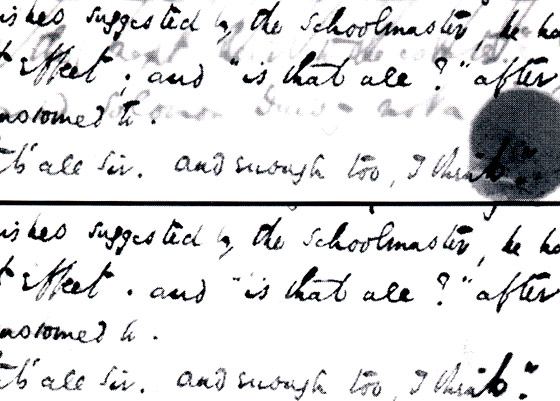 ishes suggested by the schoolmaster, he ha
t effect ; and "is that all ?" after
ustomed to .
t's all Sir. and enough too, I think."
ishes suggested by the schoolmaster, he ha
t effect . and "is that all ?" after
ustomed to .
t's all Sir. and enough too, I think."